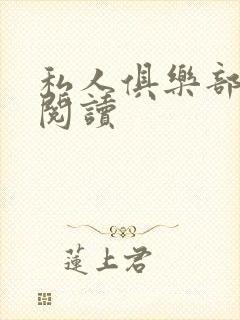 私人俱樂部
閱讀
蓮上君